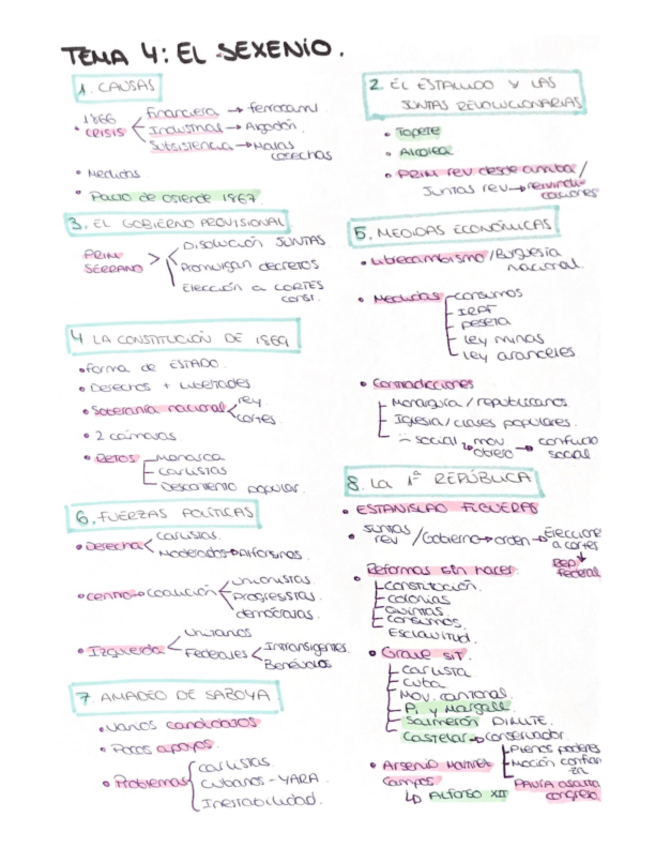 TEMA 4: EL SEXENIO.
1. CAUSAS
1866 CRISIS
Financiera → ferrocarril
Industrias → Algodón.
Subsistencia → Malas cosechas
• Medidas
• Pacto de Ostende 1867.
2. EL ESTALLIDO Y LAS
JUNTAS REVOLUCIONARIAS
• Topete
• Alcolea
• PRIM rev desde arriba/
Juntas rev → reivindi-
caciones
3. EL GOBIERNO PROVISIONAL
PRIM
SERRANO
Disolución JUNTAS
Promulgan decretos
Elección a CORTES
const.
4 LA CONSTITUCIÓN DE 1869
• forma de ESTADO.
• Derechos + libertades
• Soberanía nacional
rey
cortes.
• 2 cámaras.
• Retos
Monarca
Carlistas
Descontento popular.
5. MEDIDAS ECONÓMICAS
• Librecambismo/Burguesía
nacional.
• Medidas
consumos
IRPF
peseta
ley minas
ley aranceles
• Contradicciones
Monarquía/republicanos
Iglesia/clases populares.
social
mov. obrero → conflicto
social
6. FUERZAS POLÍTICAS
• Derecha
Carlistas.
Moderados → Alfonsinos.
• Centro → Coalición
Unionistas
Progresistas.
demócratas.
• Izquierda
Unitarios
Federales
Intransigentes.
Benévolos
7. AMADEO DE SABOYA
• Varios candidatos.
• Pocos apoyos.
• Problemas
carlistas.
Cubanos - YARA.
Inestabilidad.
8. LA 1ª REPÚBLICA
• ESTANISLAO FIGUERAS
• Juntas
rev /Gobierno → orden → Eleccione
a cortes
↓
REP
federal
• Reformas sin hacer:
Constitución.
colonias
Quintas.
Consumos.
Esclavitud.
• Grave sit.
Carlista
Cuba
Mov. cantonal.
P. y Margall.
Salmerón DIMITE.
Castelar → conservador.
Plenos poderes
Moción confian
za
PAVÍA asalta
congreso
• Arsenio Martínez
Campos
↳ ALFONSO XII